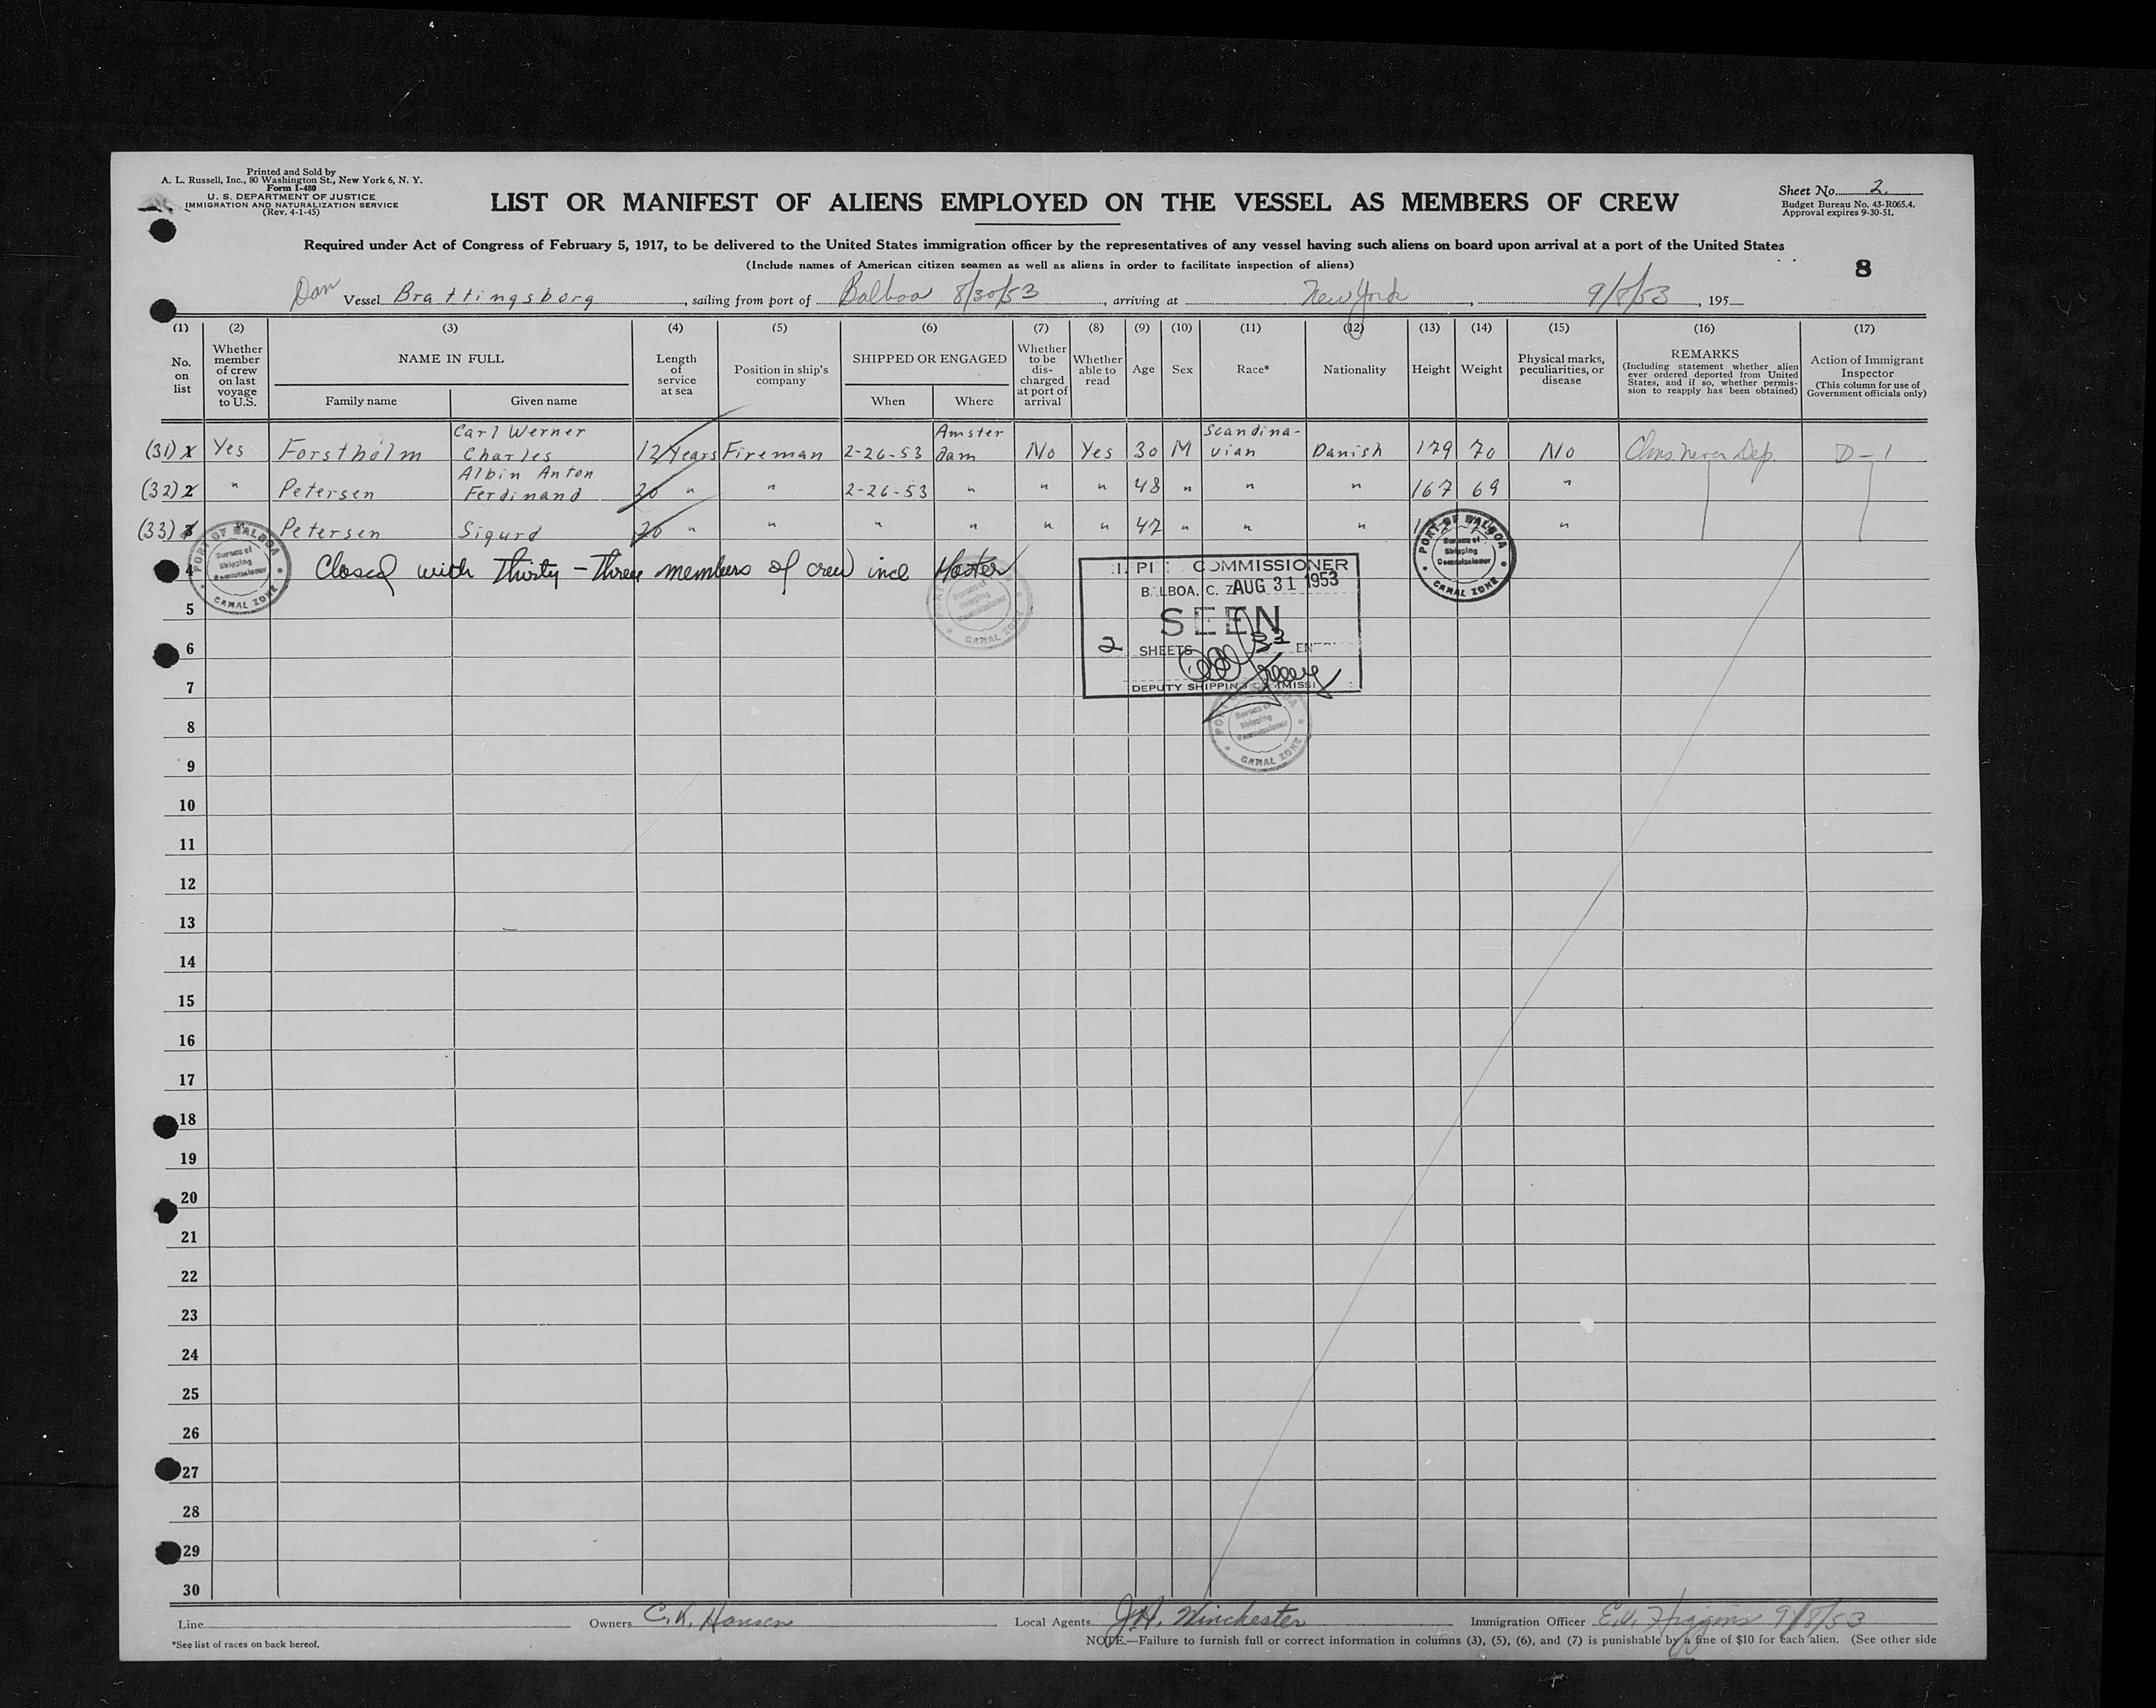 Printed and Sold by
A. L. Russell, Inc., 80 Washington St., New York 6, N. Y.
Form I-480
U. S. DEPARTMENT OF JUSTICE
IMMIGRATION AND NATURALIZATION SERVICE
(Rev. 4-1-45)
LIST OR MANIFEST OF ALIENS EMPLOYED ON THE VESSEL AS MEMBERS OF CREW
Sheet No. 2
Budget Bureau No. 43-R065.4.
Approval expires 9-30-51.
Required under Act of Congress of February 5, 1917, to be delivered to the United States immigration officer by the representatives of any vessel having such aliens on board upon arrival at a port of the United States
(Include names of American citizen seamen as well as aliens in order to facilitate inspection of aliens)
8
Dan Vessel Brattingsborg, sailing from port of Balboa 8/30/53, arriving at New York, 9/8/53, 195
(1) (2) (3) (4) (5) (6) (7) (8) (9) (10) (11) (12) (13) (14) (15) (16) (17)
No. on list
Whether member of crew on last voyage to U.S.
NAME IN FULL
Family name
Given name
Length of service at sea
Position in ship's company
SHIPPED OR ENGAGED
When
Where
Whether to be discharged at port of arrival
Whether able to read
Age
Sex
Race*
Nationality
Height
Weight
Physical marks, peculiarities, or disease
REMARKS
(Including statement whether alien ever ordered deported from United States, and if so, whether permission to reapply has been obtained)
Action of Immigrant Inspector
(This column for use of Government officials only)
(31) 1 Yes Forstholm Carl Werner Charles 12 Years Fireman 2-26-53 Amsterdam No Yes 30 M Scandina-vian Danish 179 70 No Clms. never Dep. D-1
(32) 2 " Petersen Albin Anton Ferdinand 20 " " 2-26-53 " " " 48 " " " 167 69 "
(33) 3 " Petersen Sigurd 20 " " " " " " 47 " " " "
4 Closed with Thirty-Three members of crew incl Master
PORT OF BALBOA
Bureau of
Shipping
Commissioner
CANAL ZONE
PORT OF BALBOA
Bureau of
Shipping
Commissioner
CANAL ZONE
Bureau of
Shipping
Commissioner
CANAL ZONE
COMMISSIONER
BALBOA, C. Z. AUG 31 1953
SEEN
2 SHEETS 33
DEPUTY SHIPPING COMMISSI
Bureau of
Shipping
Commissioner
CANAL ZONE
5
6
7
8
9
10
11
12
13
14
15
16
17
18
19
20
21
22
23
24
25
26
27
28
29
30
Line Owners C. K. Hansen Local Agents J.H. Winchester Immigration Officer E.V. Higgins 9/8/53
*See list of races on back hereof.
NOTE.—Failure to furnish full or correct information in columns (3), (5), (6), and (7) is punishable by a fine of $10 for each alien. (See other side